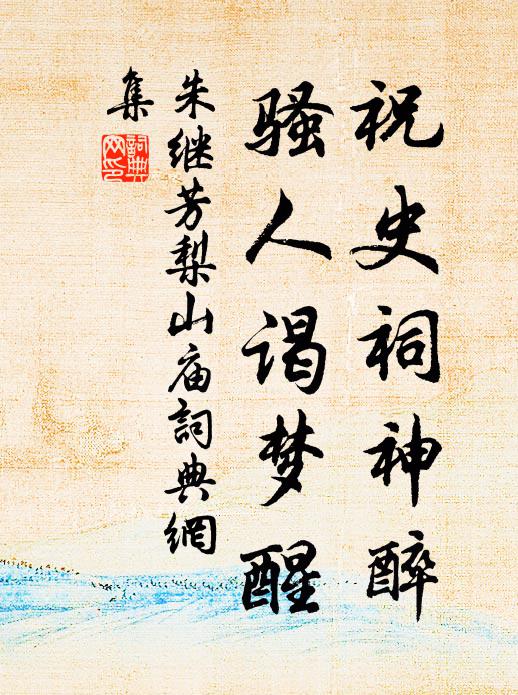 祝史祠神醉
骚人谒梦醒
朱继芳梨山庙詞典網
集
詞典
网印